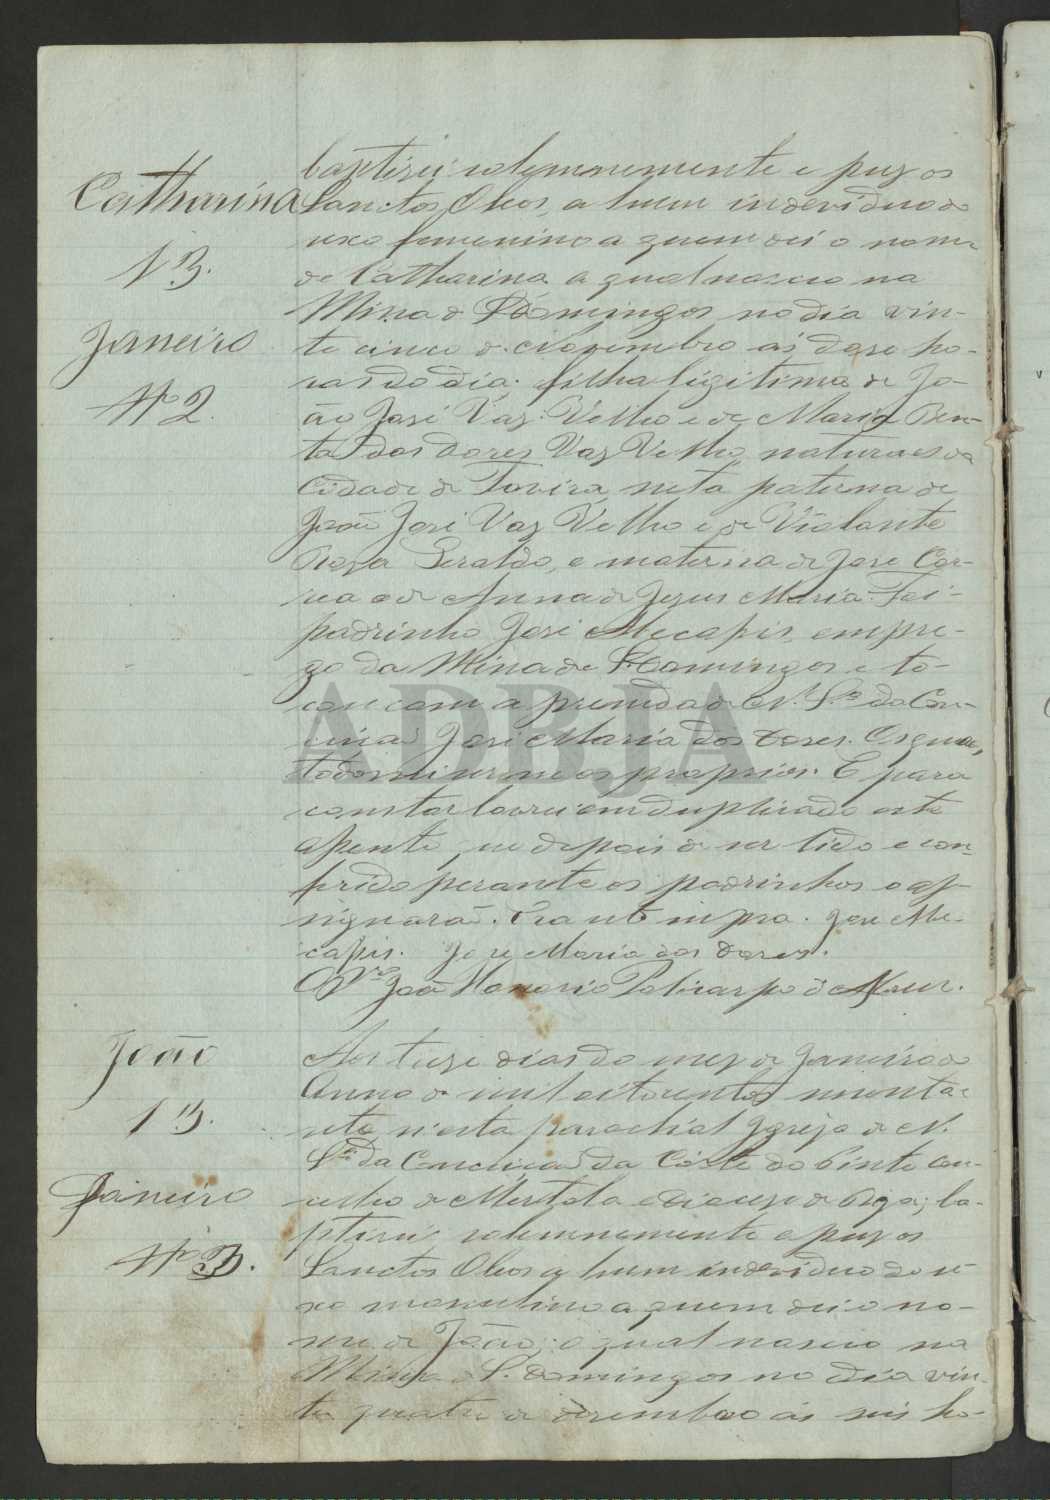 Catharina
13.
Janeiro
Nº 2.
baptisei solemnemente e puz os
Sanctos Oleos, a hum individuo do
sexo femenino a quem dei o nome
de Catharina a qual nasceo na
Mina de S. Domingos no dia vin-
te cinco de Novembro ás dose ho-
ras do dia. filha ligitima de Jo-
ão José Vaz Velho e de Maria Ben-
ta das Dores Vaz Velho, naturaes da
Cidade de Tavira, neta paterna de
João José Vaz Velho e de Violante
Rosa Geraldo, e materna de José Cor-
rea e de Anna de Jezus Maria. Foi
padrinho José Mecapis, empre-
go da Mina de S. Domingos e to-
cou com a prenda de N. Srª da Con-
ceição José Maria das Dores. Os quaes,
todos sei serem os proprios. E para
constar lavrei em duplicado este
assento, que depois de ser lido e con-
ferido perante os padrinhos o as-
signarão. Era ut supra. José Me-
capis. José Maria das Dores.
O Pr. João Honorio Policarpo de
João
13.
Janeiro
Nº 3.
Aos treze dias do mez de Janeiro do
Anno de mil oitocentos
n'esta parochial Igreja de N.
Srª da Conceição da Corte do Pinto con-
celho de Mertola e Diocese de Beja; ba-
ptisei solemnemente e puz os
Sanctos Oleos a hum individuo do se-
xo masculino a quem dei o no-
me de João; o qual nasceo na
Mina de S. Domingos no dia vin-
te quatro de Dezembro ás seis ho-
ADBJA